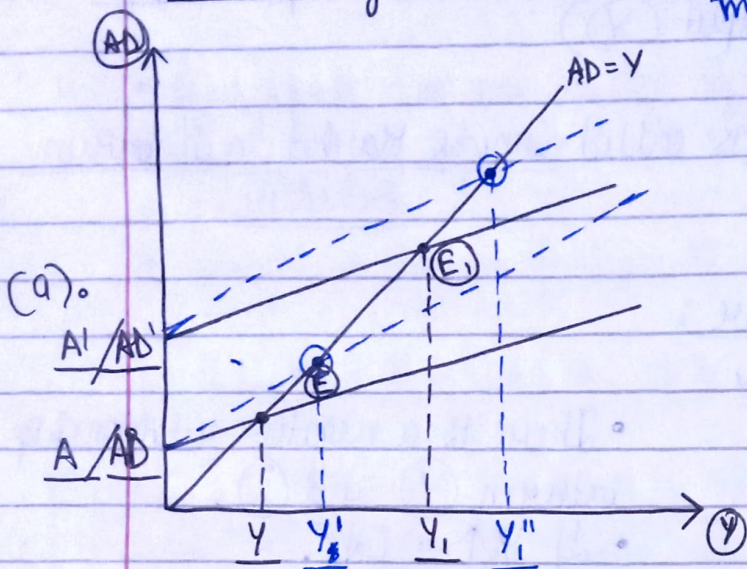 m
AD
AD = Y
E₁
(a).
A'/AD'
E
A/AD
Y Y₁' Y₁ Y₁'' Y